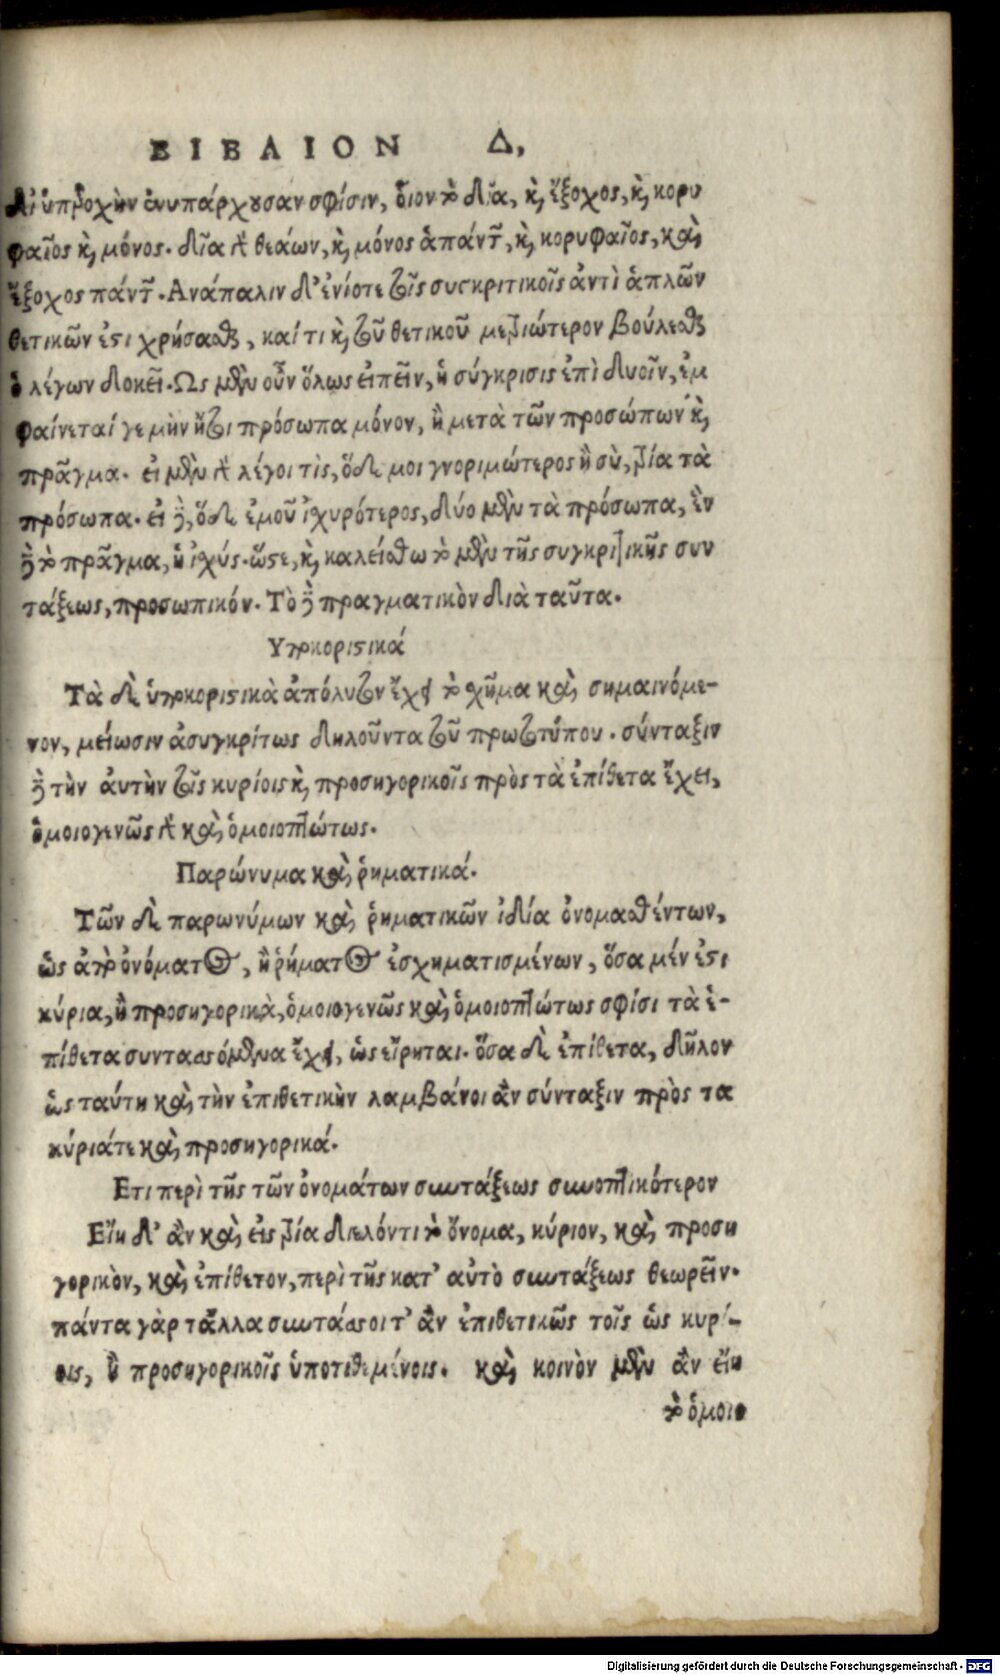 ΒΙΒΛΙΟΝ Δ,
δι' ὑπεροχὴν ἐνυπάρχουσαν σφίσιν, οἷον τὸ δῖα, καὶ, ἔξοχος, καὶ, κορυ
φαῖος καὶ, μόνος. δῖα τε θεάων, καὶ, μόνος ἁπάντων, καὶ, κορυφαῖος, καὶ,
ἔξοχος πάντων. Ανάπαλιν δ' ἐνίοτε τοῖς συγκριτικοῖς ἀντὶ ἁπλῶν
θετικῶν ἐστι χρήσασθαι, καί τι καὶ, τοῦ θετικοῦ μετριώτερον βούλεσθαι
ὁ λέγων δοκεῖ. Ως μὲν οὖν ὅλως εἰπεῖν, ἡ σύγκρισις ἐπὶ δυοῖν, ἐμ
φαίνεταί γε μὴν ἤτοι πρόσωπα μόνον, ἢ μετὰ τῶν προσώπων καὶ,
πρᾶγμα. εἰ μὲν τε λέγοι τὶς, ὅδε μοι γνοριμώτερος ἢ σὺ, τρία τὰ
πρόσωπα. εἰ δὲ, ὅδε ἐμοῦ ἰσχυρότερος, δύο μὲν τὰ πρόσωπα, ἓν
δὲ τὸ πρᾶγμα, ἡ ἰσχύς. ὥστε, καὶ, καλείσθω τὸ μὲν τῆς συγκριτικῆς συν
τάξεως, προσωπικόν. Τὸ δὲ πραγματικὸν διὰ ταῦτα.
Υποκοριστικά
Τὰ δὲ ὑποκοριστικὰ ἀπόλυτον ἔχει τὸ σχῆμα καὶ, σημαινόμε-
νον, μείωσιν ἀσυγκρίτως δηλοῦντα τοῦ πρωτοτύπου. σύνταξιν
δὲ τὴν αὐτὴν τοῖς κυρίοις καὶ, προσηγορικοῖς πρὸς τὰ ἐπίθετα ἔχει,
ὁμοιογενῶς τε καὶ, ὁμοιοπτώτως.
Παρώνυμα καὶ, ῥηματικά.
Τῶν δὲ παρωνύμων καὶ, ῥηματικῶν ἰδία ὀνομασθέντων,
ὡς ἀπὸ ὀνόματος, ἢ ῥήματος ἐσχηματισμένων, ὅσα μέν ἐστι
κύρια, ἢ προσηγορικὰ, ὁμοιογενῶς καὶ, ὁμοιοπτώτως σφίσι τὰ ἐ-
πίθετα συντασσόμενα ἔχει, ὡς εἴρηται. ὅσα δὲ ἐπίθετα, δῆλον
ὡς ταύτη καὶ, τὴν ἐπιθετικὴν λαμβάνοι ἂν σύνταξιν πρὸς τα
κύριάτε καὶ, προσηγορικά.
Ετι περὶ τῆς τῶν ὀνομάτων συντάξεως συνοπτικότερον
Εἴη δ' ἂν καὶ, εἰς τρία διελόντι τὸ ὄνομα, κύριον, καὶ, προση
γορικὸν, καὶ, ἐπίθετον, περὶ τῆς κατ' αὐτὸ συντάξεως θεωρεῖν.
πάντα γὰρ τἆλλα συντάσσοιτ' ἂν ἐπιθετικῶς τοῖς ὡς κυρί-
οις, ἢ προσηγορικοῖς ὑποτιθεμένοις. καὶ, κοινὸν μὲν ἂν εἴη
τὸ ὁμοιο
Digitalisierung gefördert durch die Deutsche Forschungsgemeinschaft - DFG